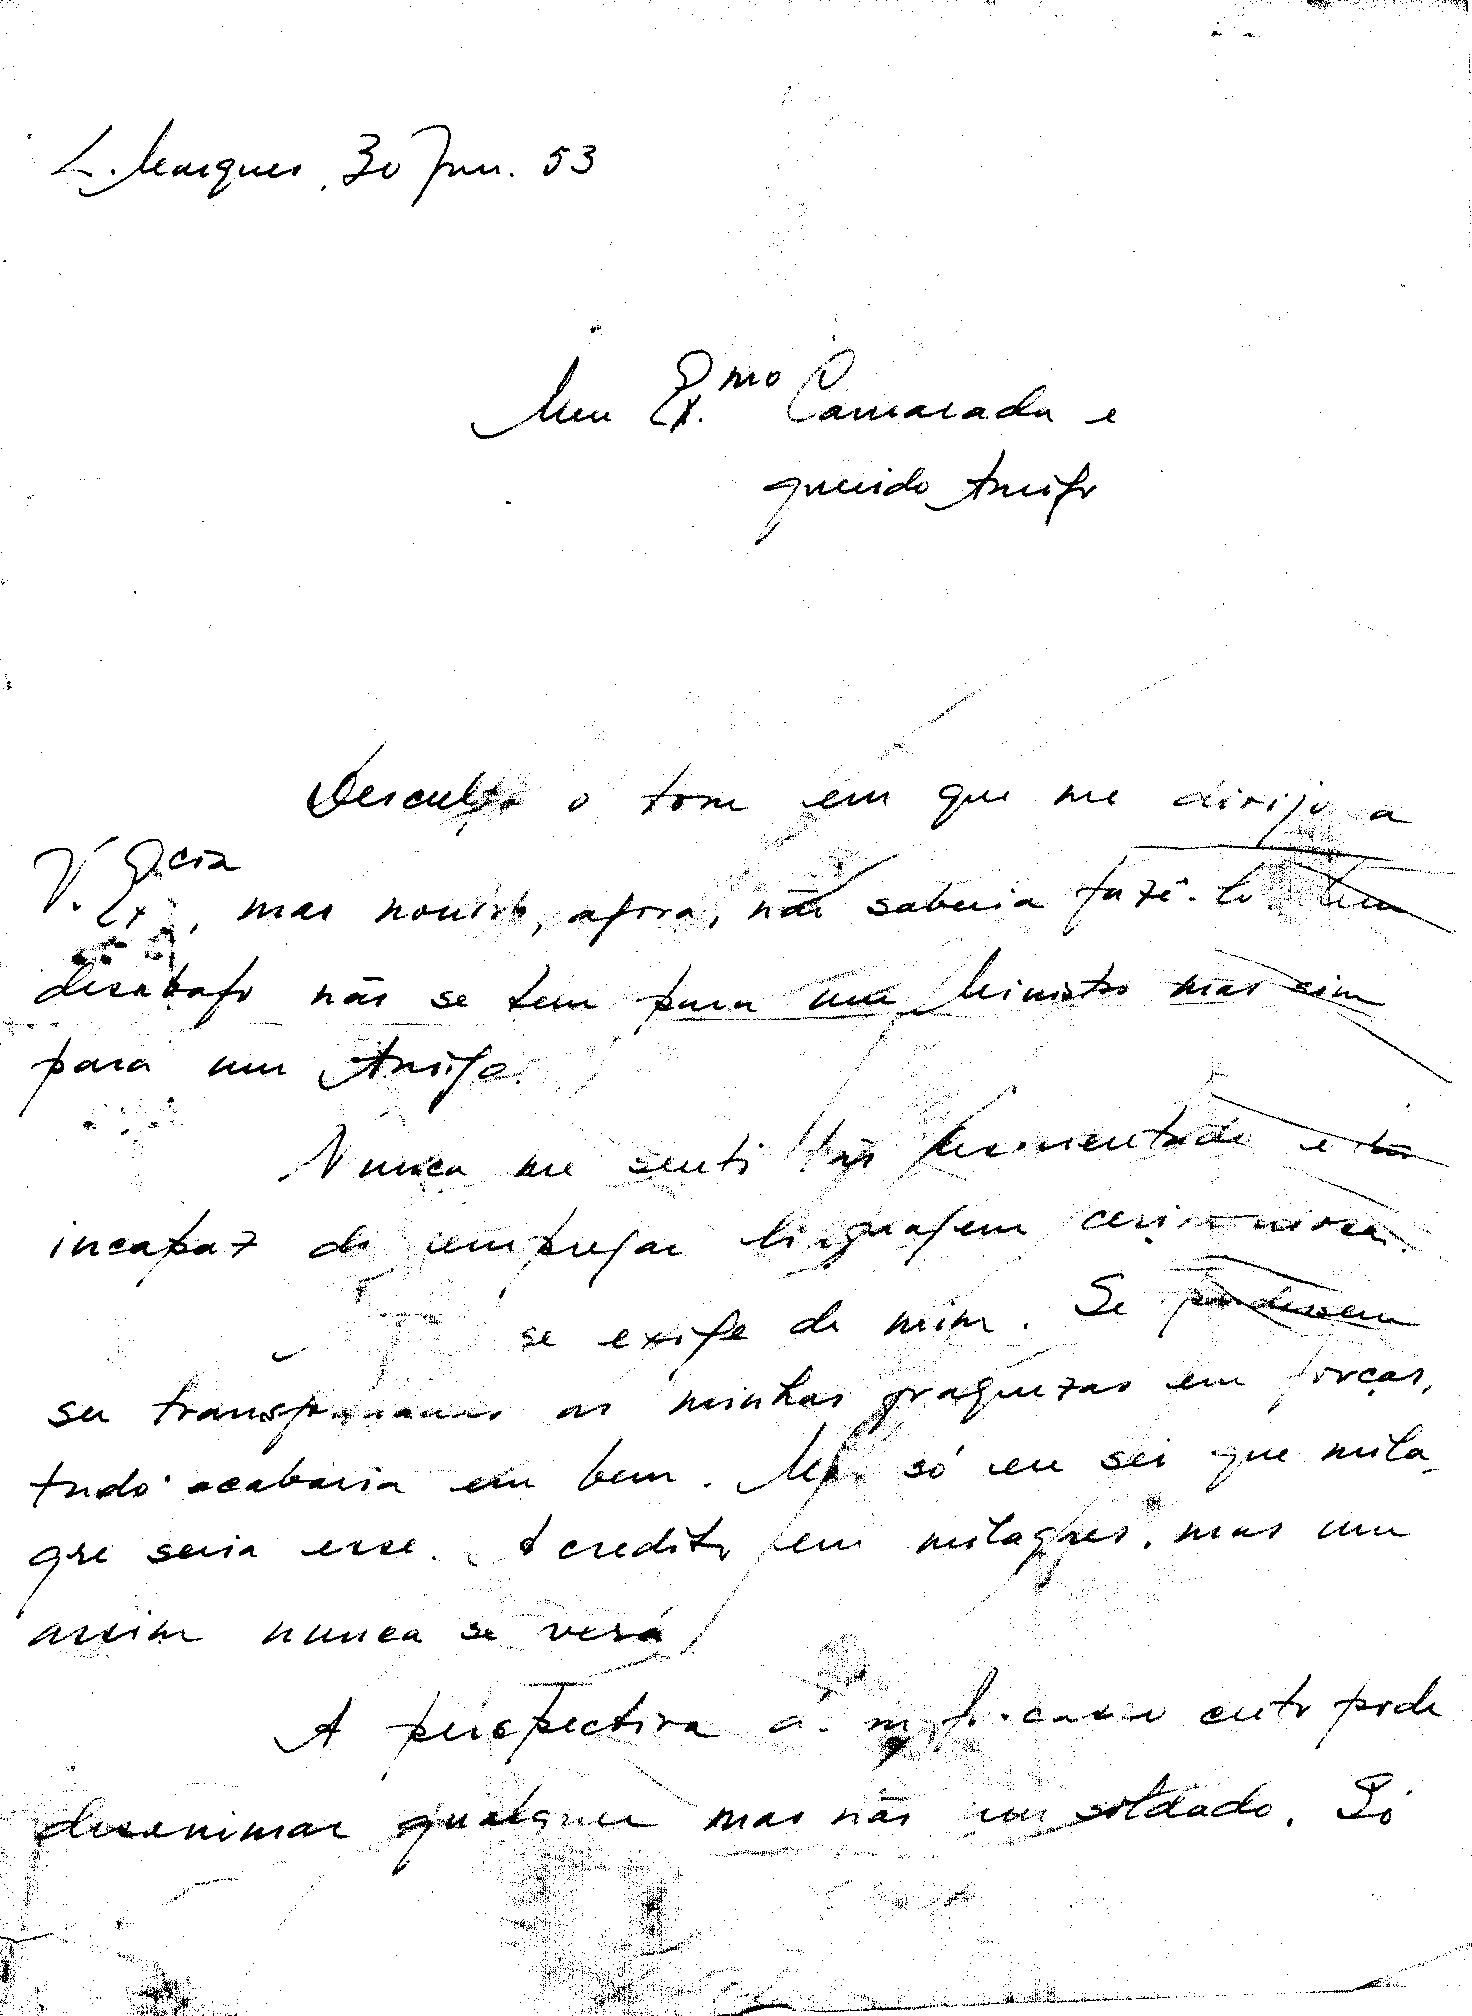 L. Marques, 30 Jun. 53
Meu Ex.mo Camarada e
querido Amigo
Desculpe o tom em que me dirijo a
V. Ex.cia, mas noutro, agora, não saberia fazê-lo. Um
desabafo não se tem para um Ministro mas sim
para um Amigo.
Nunca me senti tão e tão
incapaz de empregar linguagem cerimoniosa.
se exige de mim. Se pudessem
ser as minhas fraquezas em forças,
tudo acabaria em bem. Mas só eu sei que mila-
gre seria esse. Acredito em milagres, mas um
assim nunca se verá
A perspectiva certo pode
desanimar qualquer mas não um soldado. Só